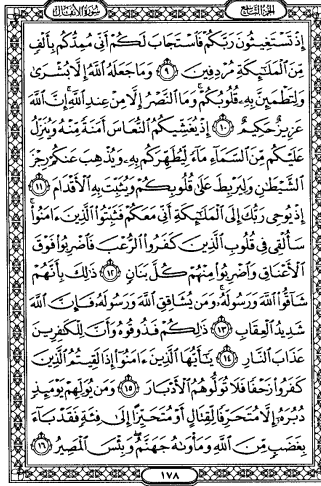 الجزء التاسع
سورة الأنفال
إِذْ تَسْتَغِيثُونَ رَبَّكُمْ فَاسْتَجَابَ لَكُمْ أَنِّي مُمِدُّكُم بِأَلْفٍ
مِّنَ الْمَلَٰئِكَةِ مُرْدِفِينَ ٩ وَمَا جَعَلَهُ اللَّهُ إِلَّا بُشْرَىٰ
وَلِتَطْمَئِنَّ بِهِ قُلُوبُكُمْ وَمَا النَّصْرُ إِلَّا مِنْ عِندِ اللَّهِ إِنَّ اللَّهَ
عَزِيزٌ حَكِيمٌ ١٠ إِذْ يُغَشِّيكُمُ النُّعَاسَ أَمَنَةً مِّنْهُ وَيُنَزِّلُ
عَلَيْكُم مِّنَ السَّمَاءِ مَاءً لِّيُطَهِّرَكُم بِهِ وَيُذْهِبَ عَنكُمْ رِجْزَ
الشَّيْطَٰنِ وَلِيَرْبِطَ عَلَىٰ قُلُوبِكُمْ وَيُثَبِّتَ بِهِ الْأَقْدَامَ ١١
إِذْ يُوحِي رَبُّكَ إِلَى الْمَلَٰئِكَةِ أَنِّي مَعَكُمْ فَثَبِّتُوا الَّذِينَ ءَامَنُوا
سَأُلْقِي فِي قُلُوبِ الَّذِينَ كَفَرُوا الرُّعْبَ فَاضْرِبُوا فَوْقَ
الْأَعْنَاقِ وَاضْرِبُوا مِنْهُمْ كُلَّ بَنَانٍ ١٢ ذَٰلِكَ بِأَنَّهُمْ
شَاقُّوا اللَّهَ وَرَسُولَهُ وَمَن يُشَاقِقِ اللَّهَ وَرَسُولَهُ فَإِنَّ اللَّهَ
شَدِيدُ الْعِقَابِ ١٣ ذَٰلِكُمْ فَذُوقُوهُ وَأَنَّ لِلْكَٰفِرِينَ
عَذَابَ النَّارِ ١٤ يَٰأَيُّهَا الَّذِينَ ءَامَنُوا إِذَا لَقِيتُمُ الَّذِينَ
كَفَرُوا زَحْفًا فَلَا تُوَلُّوهُمُ الْأَدْبَارَ ١٥ وَمَن يُوَلِّهِمْ يَوْمَئِذٍ
دُبُرَهُ إِلَّا مُتَحَرِّفًا لِّقِتَالٍ أَوْ مُتَحَيِّزًا إِلَىٰ فِئَةٍ فَقَدْ بَاءَ
بِغَضَبٍ مِّنَ اللَّهِ وَمَأْوَىٰهُ جَهَنَّمُ وَبِئْسَ الْمَصِيرُ ١٦
١٧٨